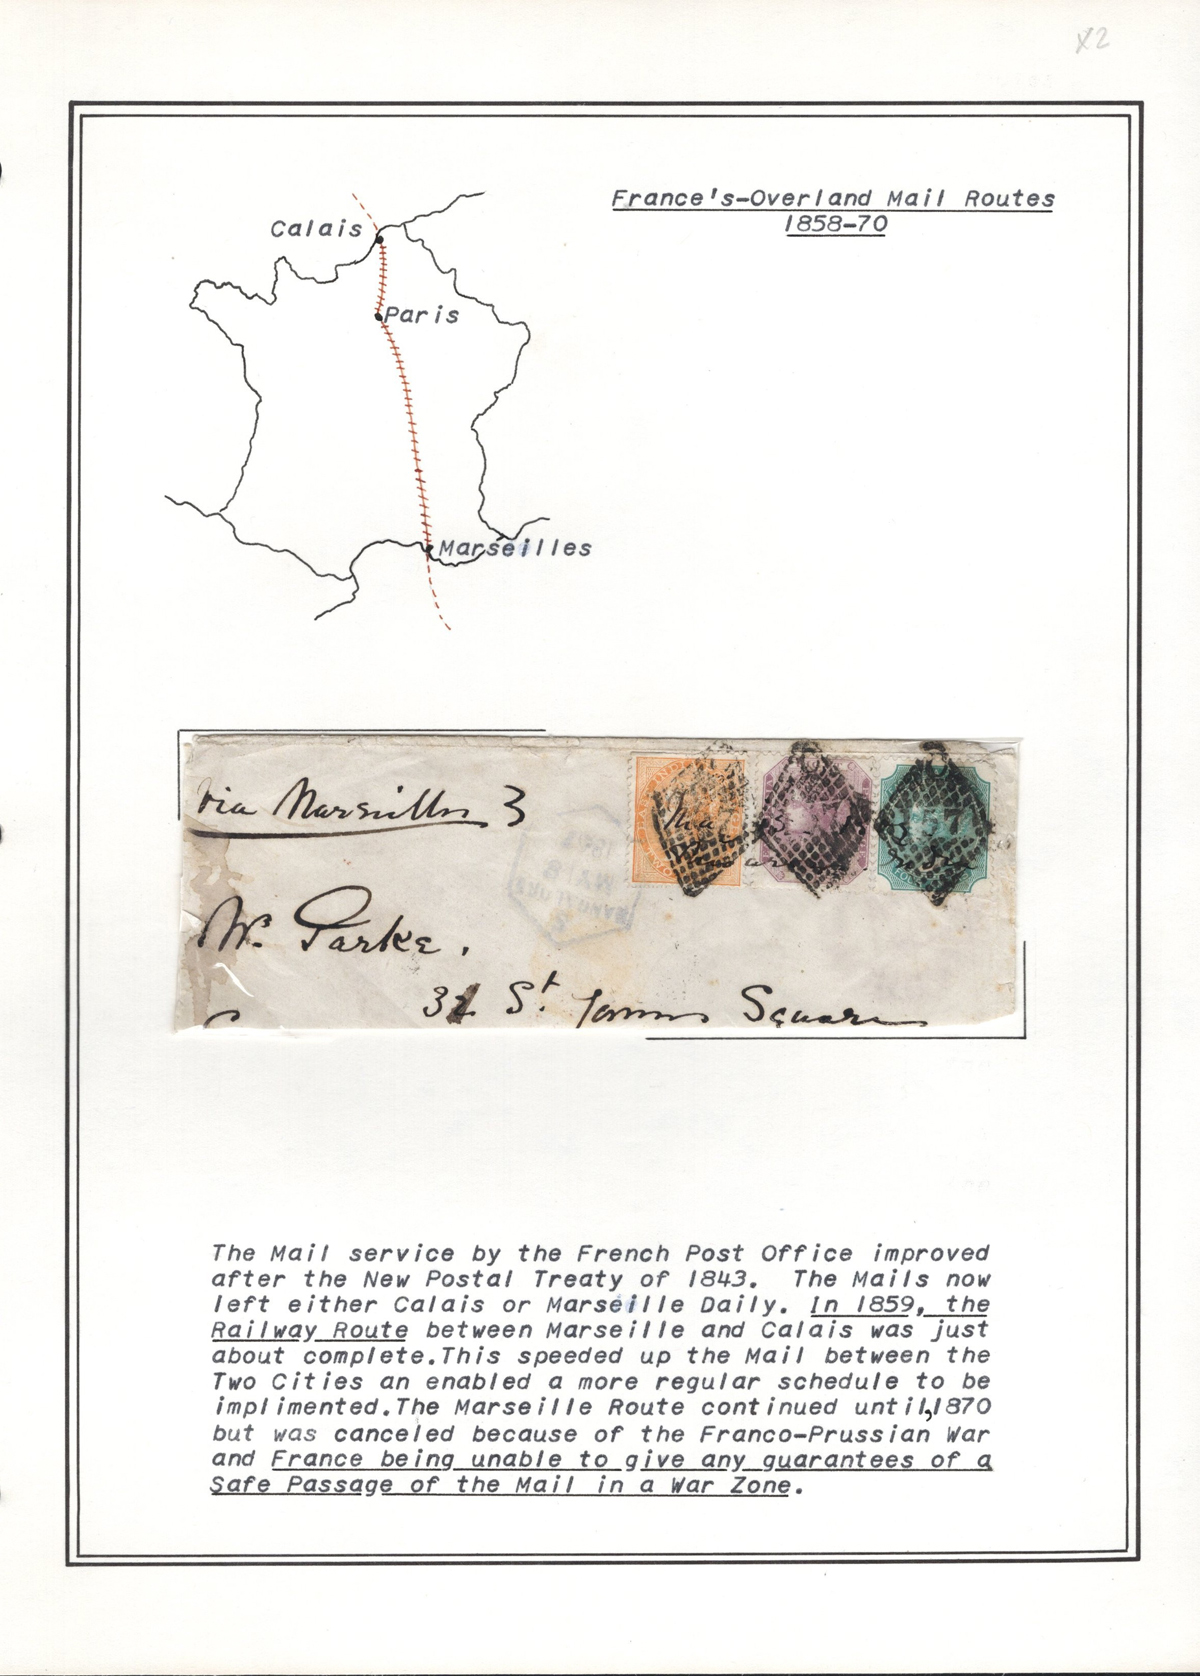 X2
France's-Overland Mail Routes
1858-70
Calais
Paris
Marseilles
via Marseilles 3
W. Parke.
32 St James Square
The Mail service by the French Post Office improved
after the New Postal Treaty of 1843. The Mails now
left either Calais or Marseille Daily. In 1859, the
Railway Route between Marseille and Calais was just
about complete.This speeded up the Mail between the
Two Cities an enabled a more regular schedule to be
implimented.The Marseille Route continued until,1870
but was canceled because of the Franco-Prussian War
and France being unable to give any guarantees of a
Safe Passage of the Mail in a War Zone.